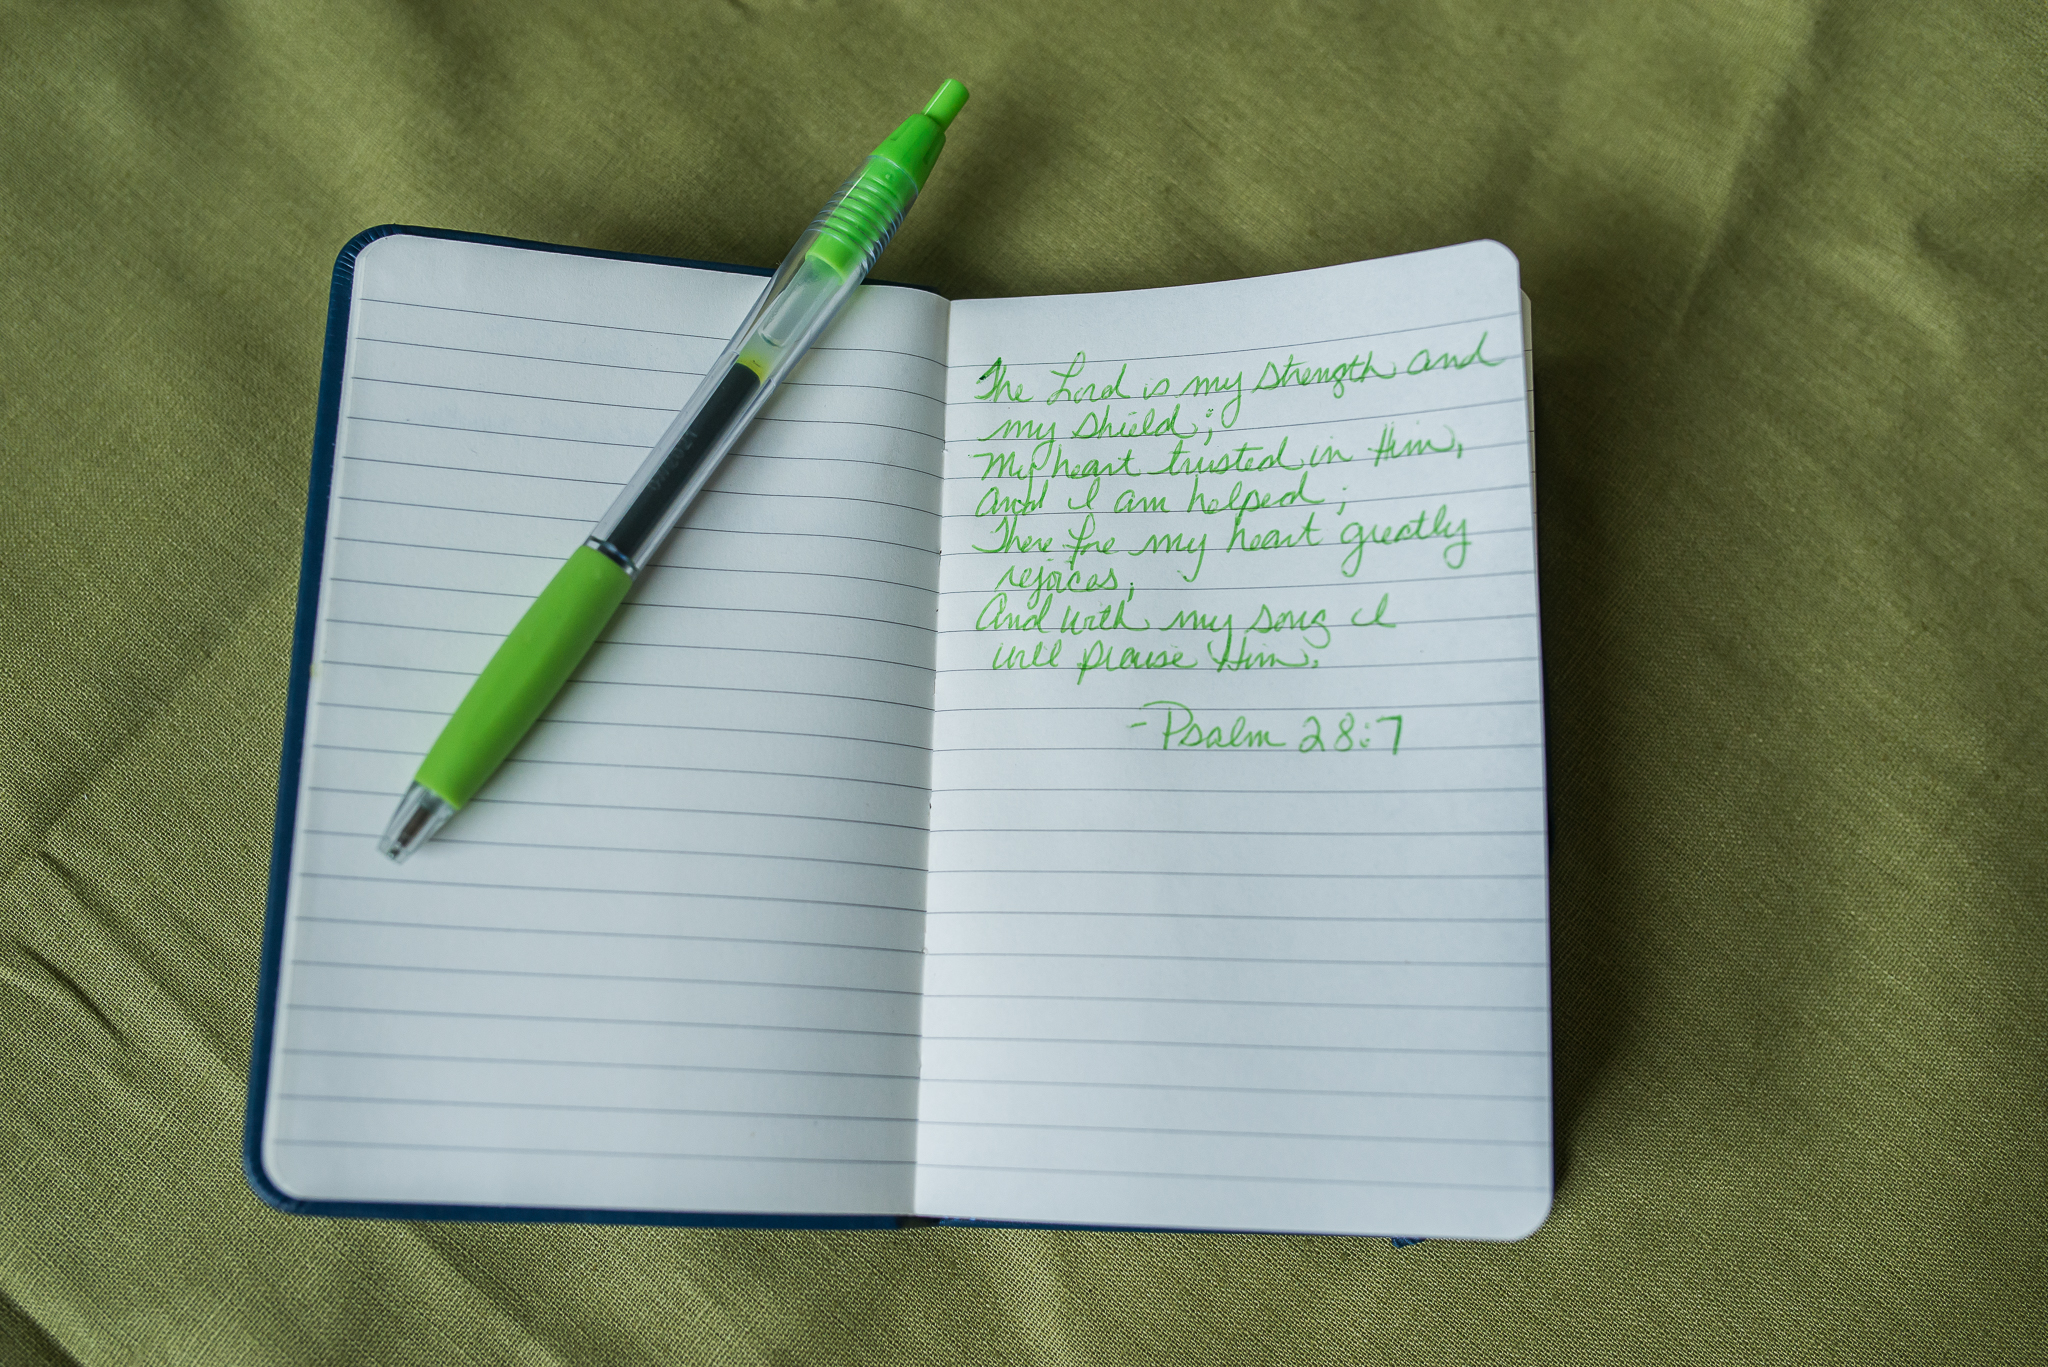 The Lord is my strength and
my shield;
My heart trusted in Him,
and I am helped;
There fore my heart greatly
rejoices;
And with my song I
will praise Him.
-Psalm 28:7